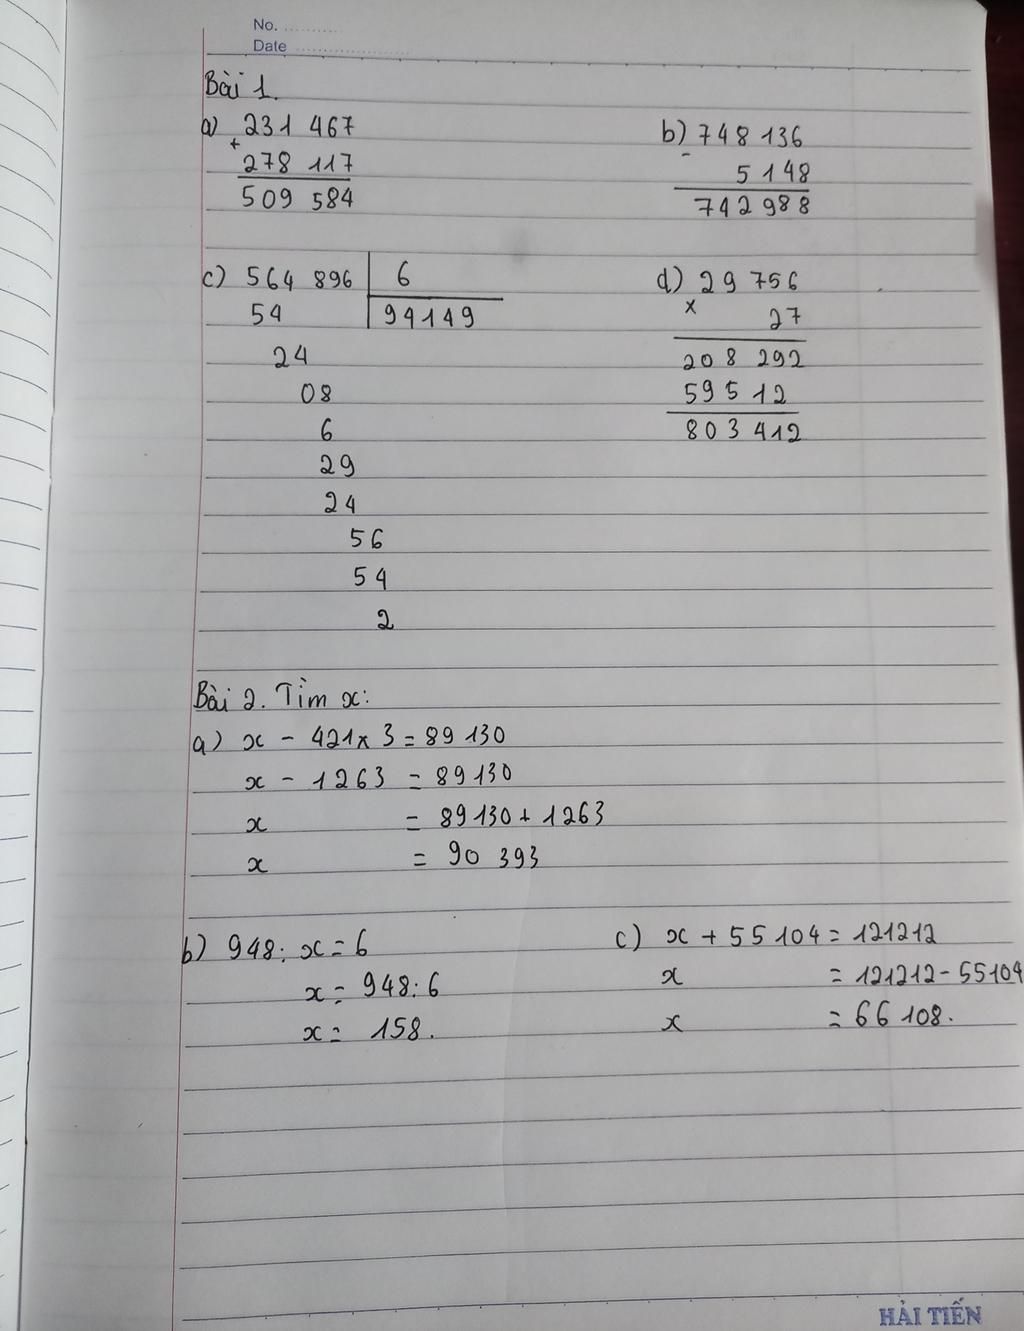 No. ............
Date ........................
Bài 1.
a) 231 467
+
278 117
509 584
b) 748 136
-
5 148
742 988
c) 564 896 6
54 94149
24
08
6
29
24
56
54
2
d) 29 756
x
27
208 292
595 12
803 412
Bài 2. Tìm x:
a) x - 421 x 3 = 89 130
x - 1263 = 89130
x = 89130 + 1263
x = 90 393
b) 948 : x = 6
x = 948 : 6
x = 158.
c) x + 55 104 = 121212
x = 121212 - 55104
x = 66 108.
HẢI TIẾN